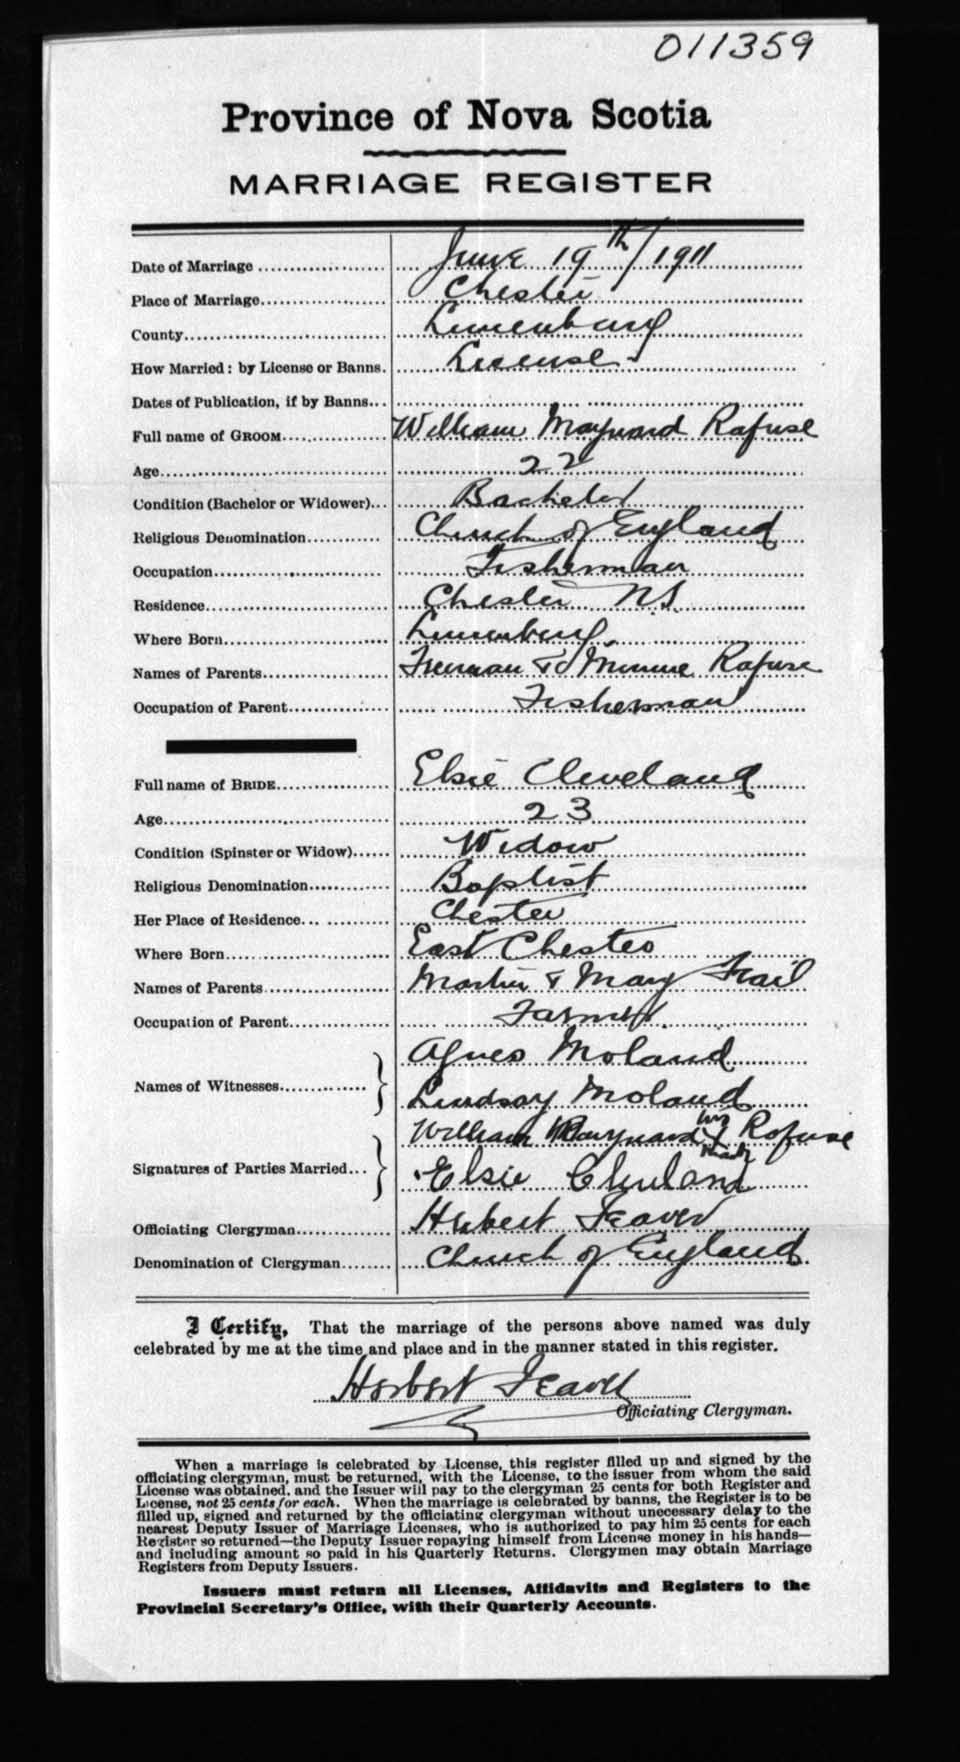 011359
Province of Nova Scotia
MARRIAGE REGISTER
Date of Marriage June 19th/1911
Place of Marriage Chester
County Lunenburg
How Married: by License or Banns. License
Dates of Publication, if by Banns
Full name of GROOM William Maynard Rafuse
Age 22
Condition (Bachelor or Widower) Bachelor
Religious Denomination Church of England
Occupation Fisherman
Residence Chester N.S.
Where Born Lunenburg.
Names of Parents Freeman & Minnie Rafuse
Occupation of Parent Fisherman
Full name of BRIDE Elsie Cleveland
Age 23
Condition (Spinster or Widow) Widow
Religious Denomination Baptist
Her Place of Residence Chester
Where Born East Chester
Names of Parents Martin & Mary Frail
Occupation of Parent Farmer
Names of Witnesses Agnes Moland
Lindsay Moland
William Maynard his X mark Rafuse
Signatures of Parties Married Elsie Cleveland
Officiating Clergyman Herbert
Denomination of Clergyman Church of England
I Certify, That the marriage of the persons above named was duly
celebrated by me at the time and place and in the manner stated in this register.
Herbert
Officiating Clergyman.
When a marriage is celebrated by License, this register filled up and signed by the
officiating clergyman, must be returned, with the License, to the issuer from whom the said
License was obtained, and the Issuer will pay to the clergyman 25 cents for both Register and
License, not 25 cents for each. When the marriage is celebrated by banns, the Register is to be
filled up, signed and returned by the officiating clergyman without unecessary delay to the
nearest Deputy Issuer of Marriage Licenses, who is authorized to pay him 25 cents for each
Register so returned—the Deputy Issuer repaying himself from License money in his hands—
and including amount so paid in his Quarterly Returns. Clergymen may obtain Marriage
Registers from Deputy Issuers.
Issuers must return all Licenses, Affidavits and Registers to the
Provincial Secretary's Office, with their Quarterly Accounts.